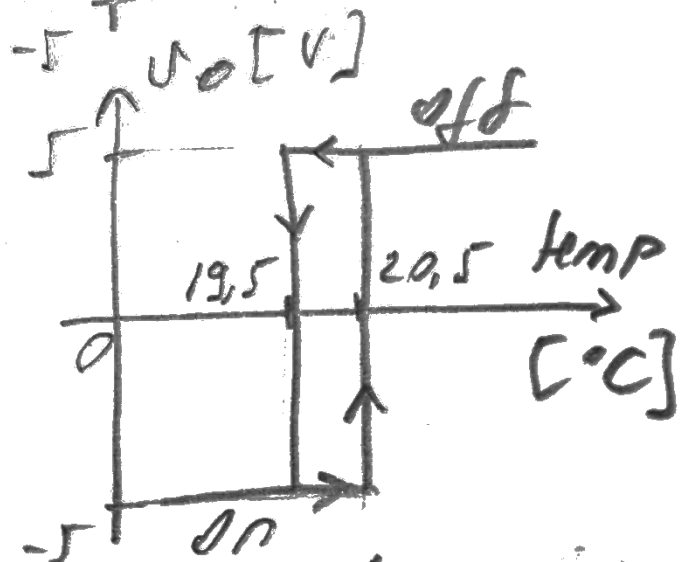 -5
υo [V]
off
5
19,5
20,5
temp
[°C]
0
-5
on